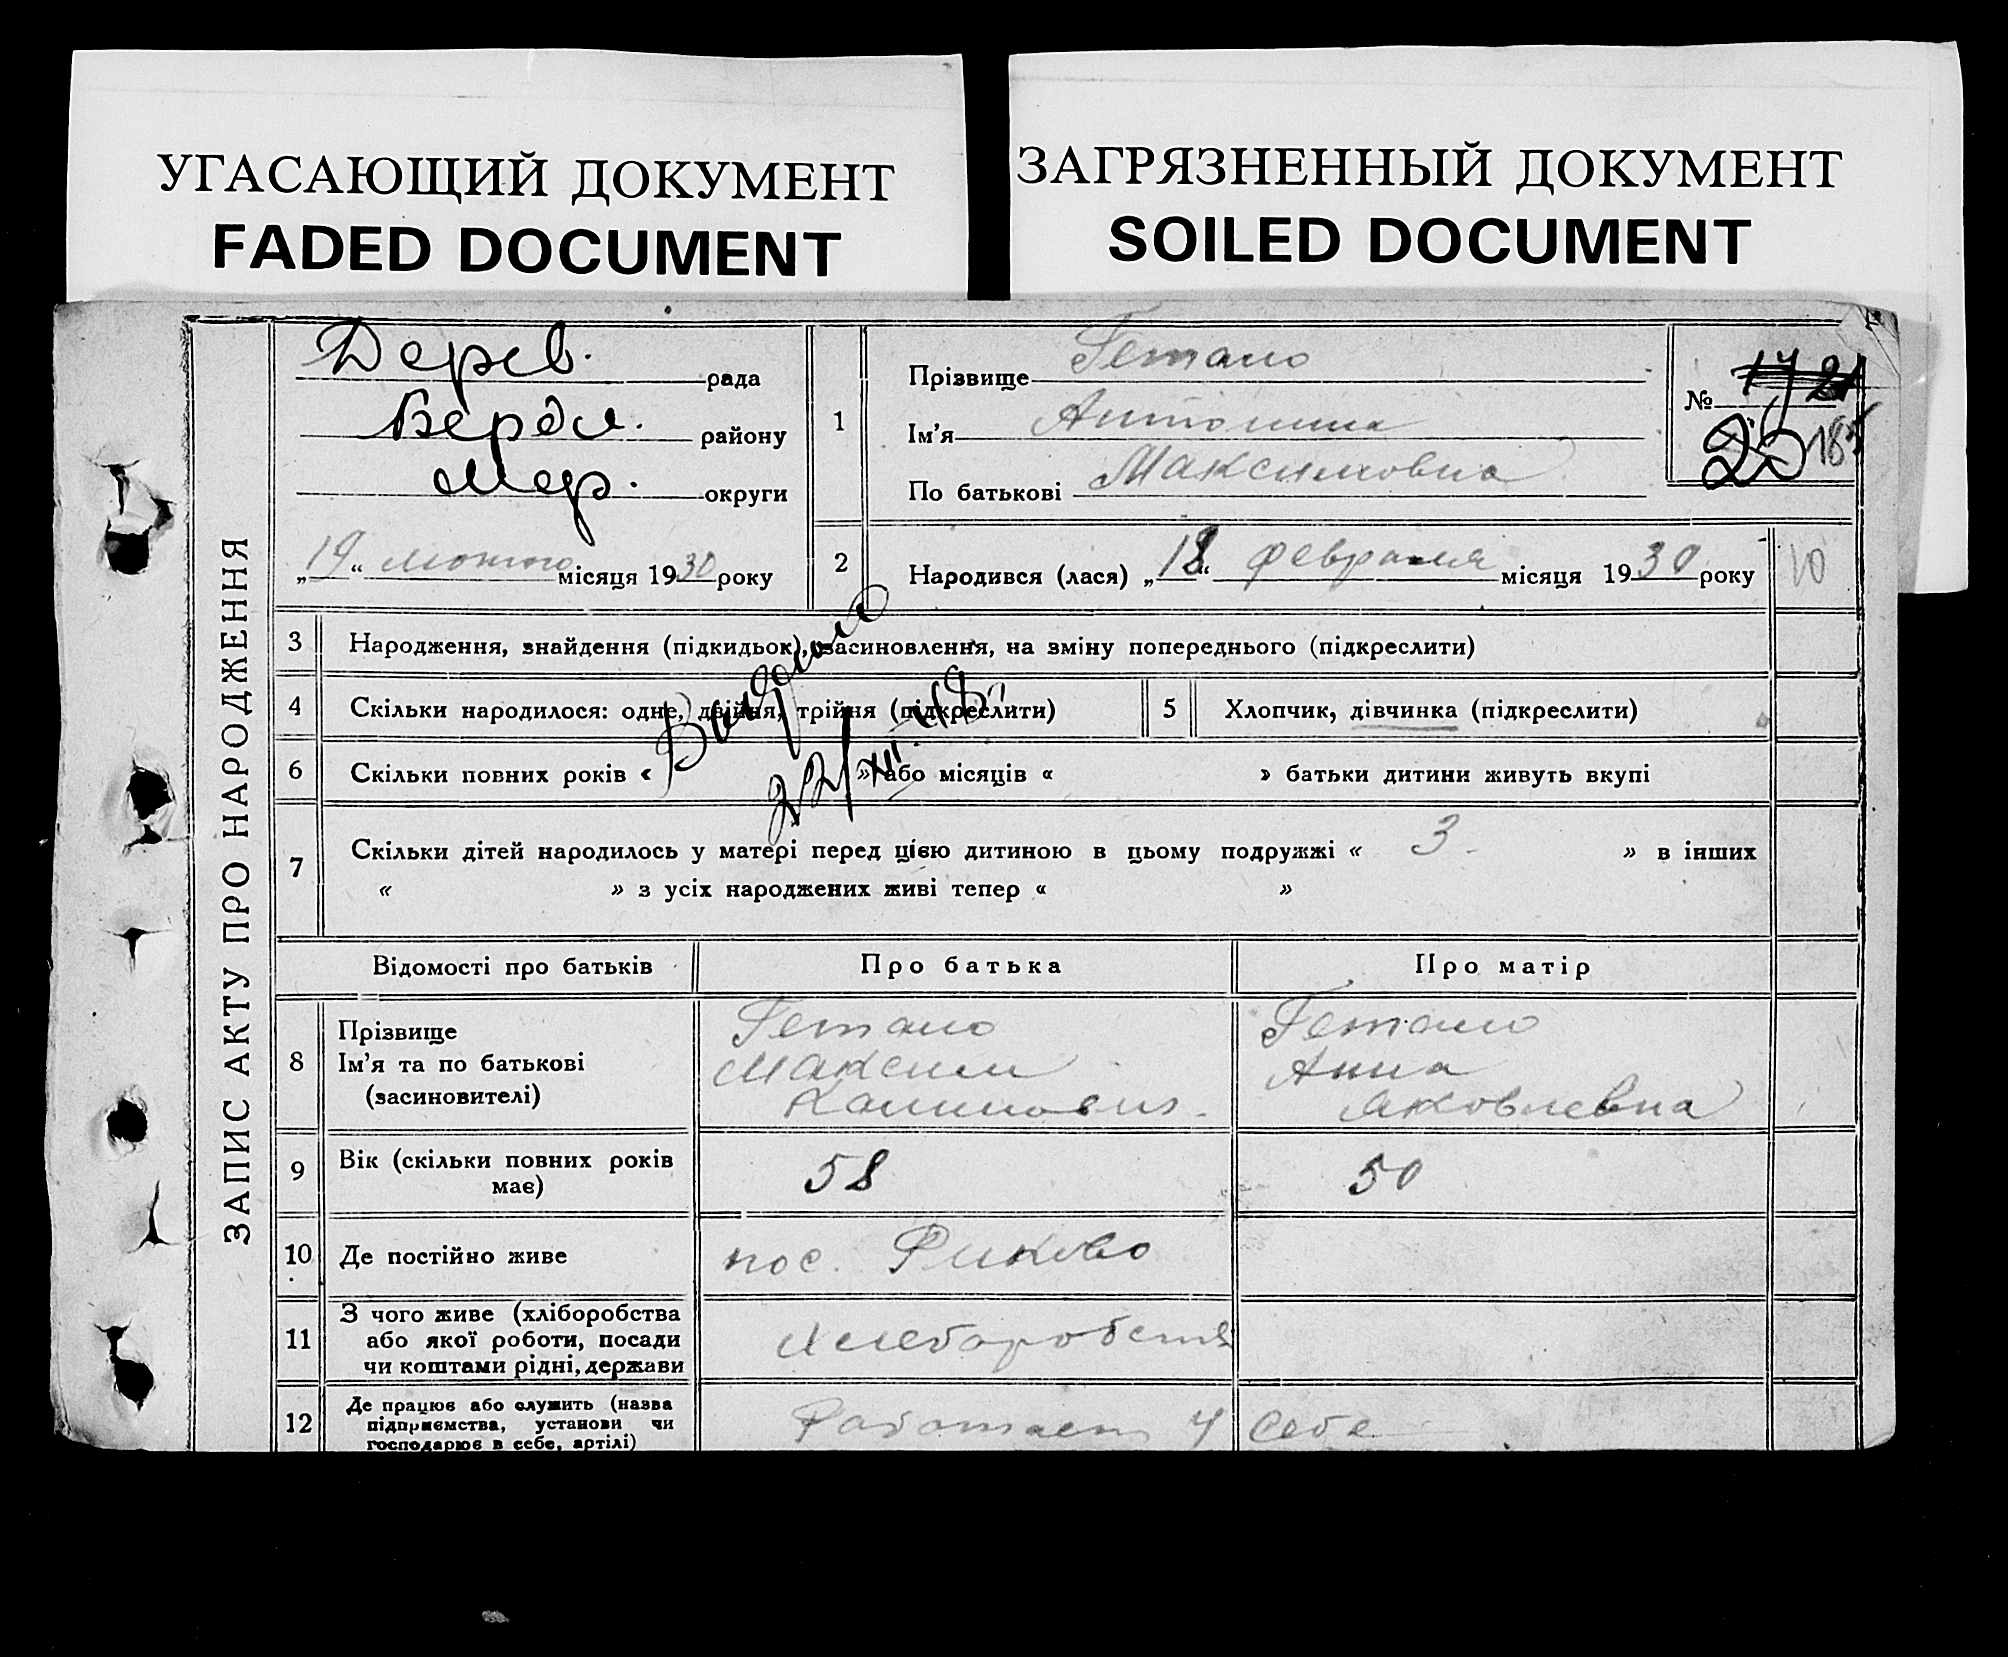 УГАСАЮЩИЙ ДОКУМЕНТ
FADED DOCUMENT
ЗАГРЯЗНЕННЫЙ ДОКУМЕНТ
SOILED DOCUMENT
ЗАПИС АКТУ ПРО НАРОДЖЕННЯ
Дерев. рада
Бердя. району
Мер. округи
„19“ лютого місяця 1930 року
1
Прізвище Гетало
Ім'я Антонина
По батькові Максимовна
№
25 185
2 Народився (лася) „18“ февраля місяця 1930 року 10
3 Народження, знайдення (підкидьок), засиновлення, на зміну попереднього (підкреслити)
4 Скільки народилося: одне, двійня, трійня (підкреслити) 5 Хлопчик, дівчинка (підкреслити)
6 Скільки повних років « » або місяців « » батьки дитини живуть вкупі
22/XII
7 Скільки дітей народилось у матері перед цією дитиною в цьому подружжі « 3 » в інших
« » з усіх народжених живі тепер « »
Відомості про батьків Про батька Про матір
8 Прізвище Гетало Гетало
Ім'я та по батькові Максим Анна
(засиновителі) Яковлевна
9 Вік (скільки повних років має) 58 50
10 Де постійно живе пос. Риково
11 З чого живе (хліборобства
або якої роботи, посади
чи коштами рідні, держави
12 Де працює або служить (назва
підприємства, установи чи
господарює в себе, артілі)
Работает у себе